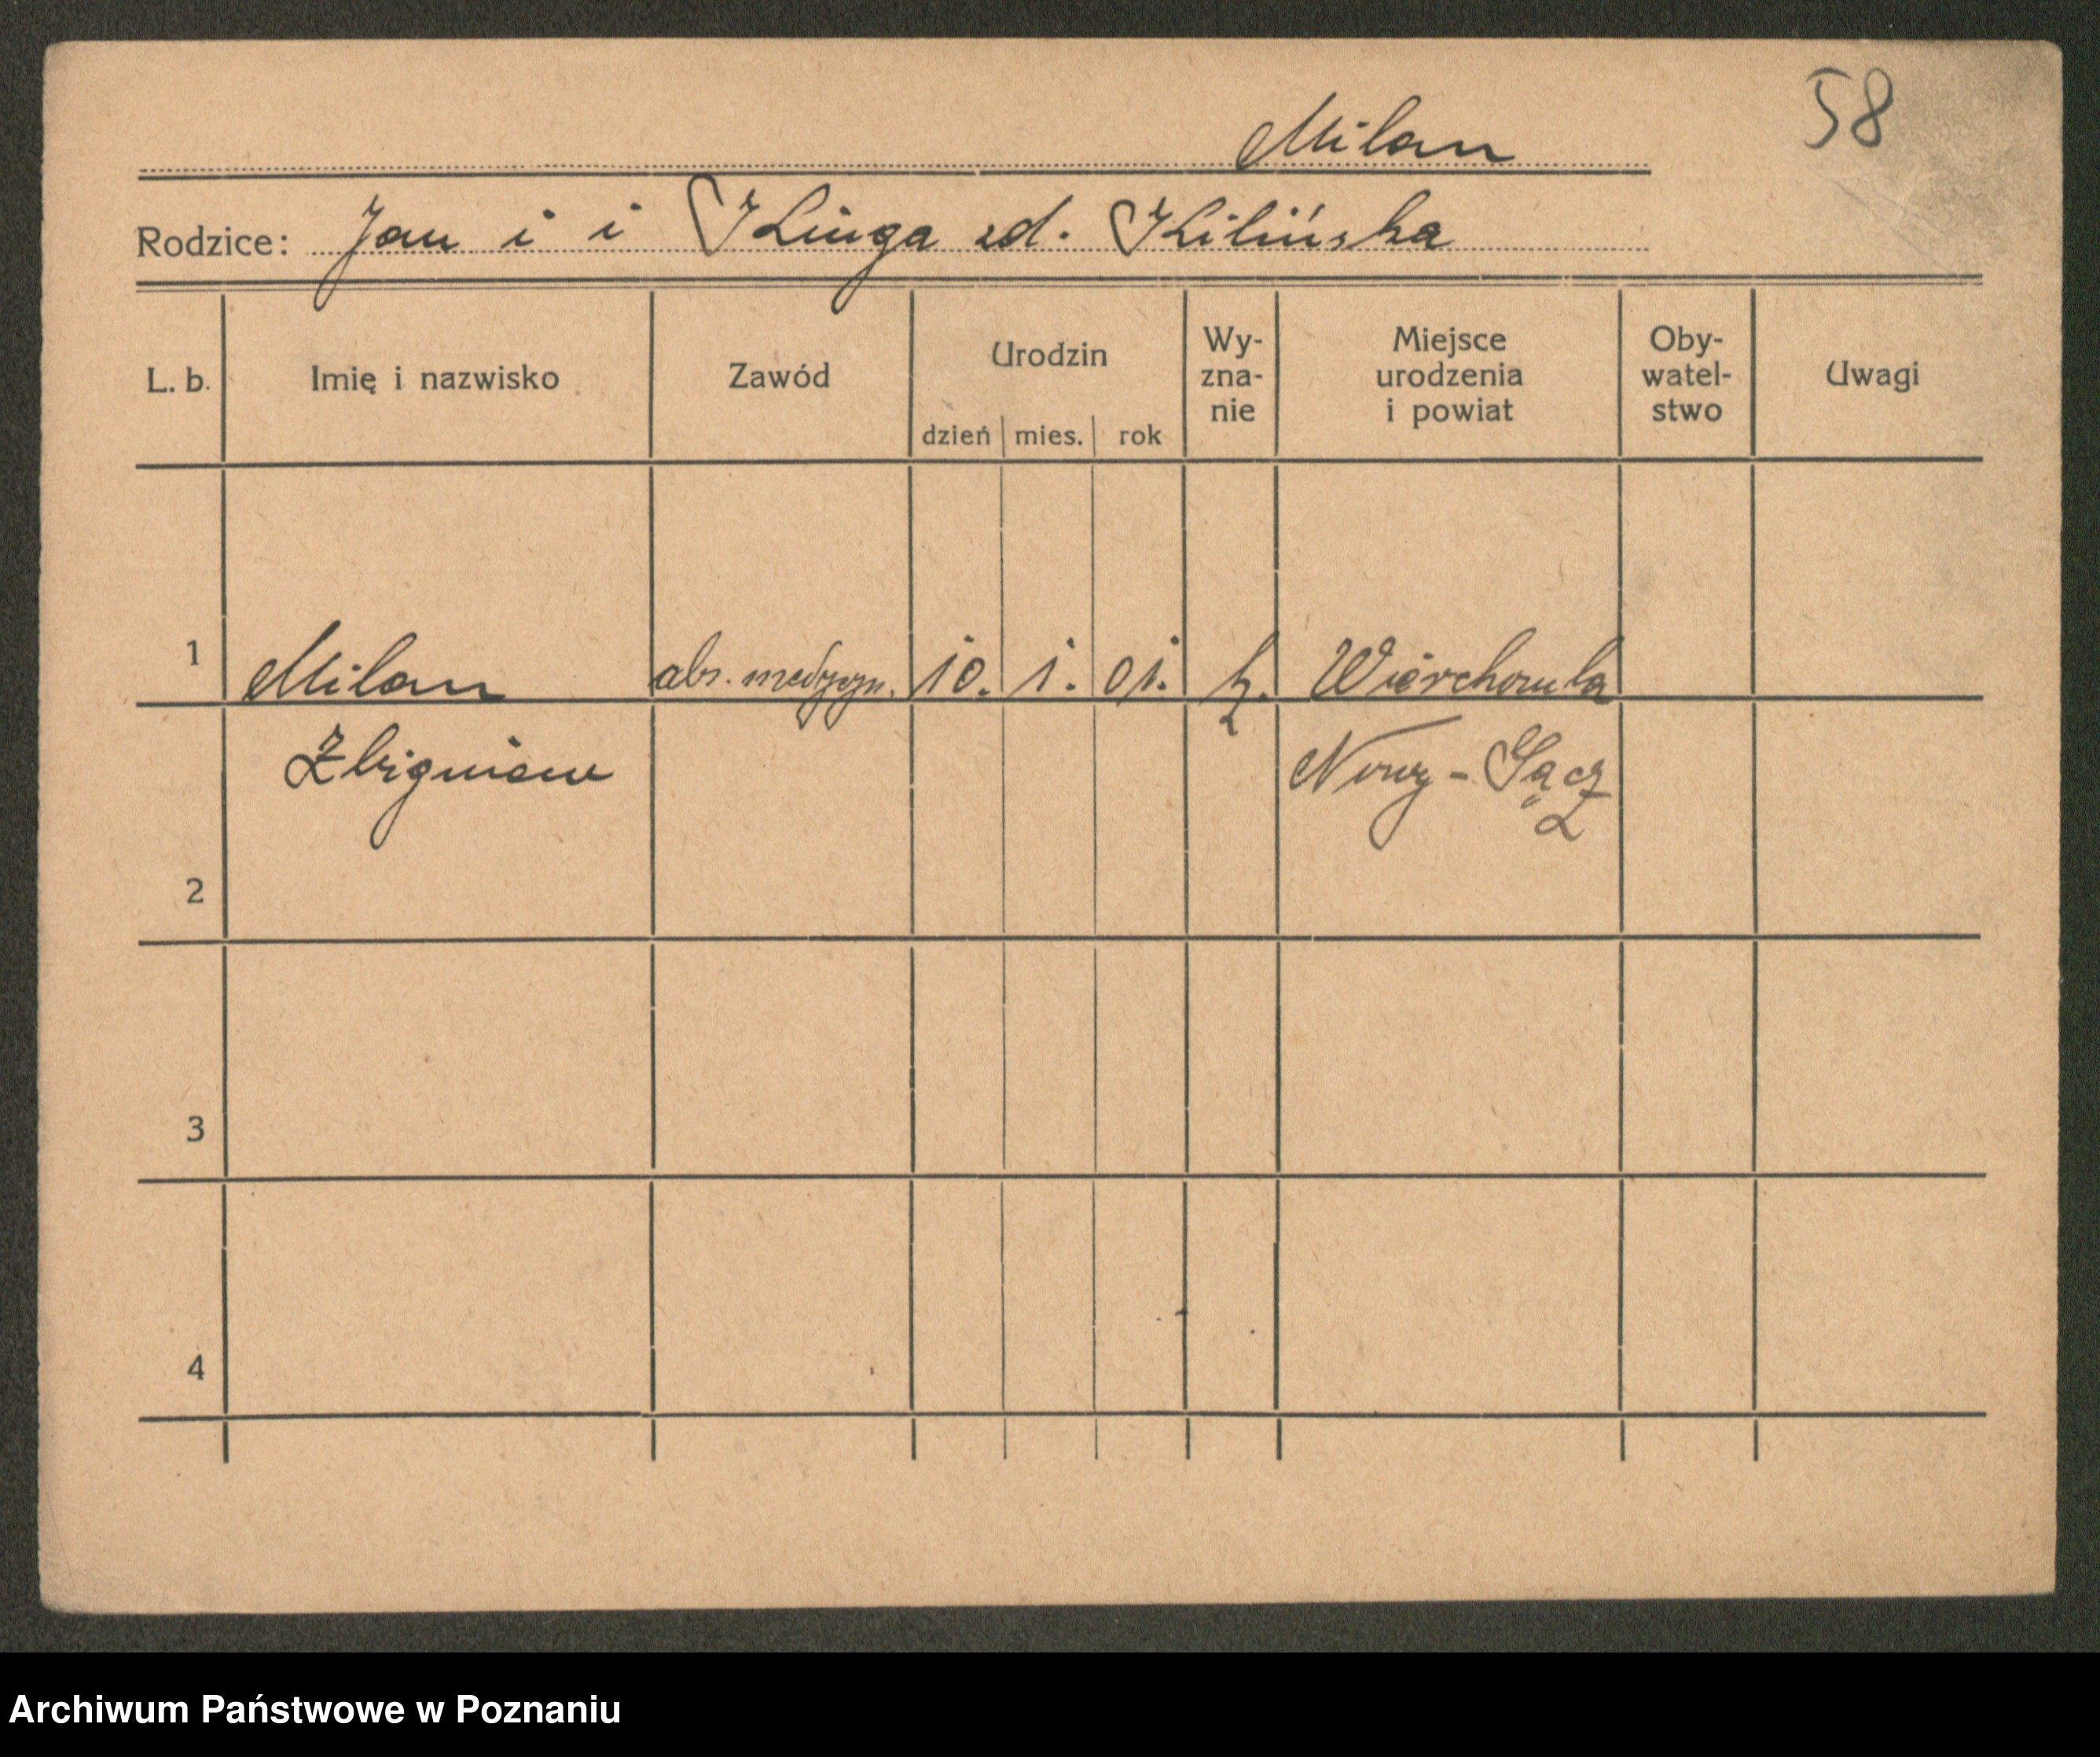 58
Milan
Rodzice: Jan i i Kinga zd. Kilińska
L. b. Imię i nazwisko Zawód Urodzin dzień mies. rok Wy-zna-nie Miejsce urodzenia i powiat Oby-watel-stwo Uwagi
1 Milan abs. medycyn. 10. 1. 01. Wierchomla
Zbigniew Nowy-Sącz
2
3
4
Archiwum Państwowe w Poznaniu